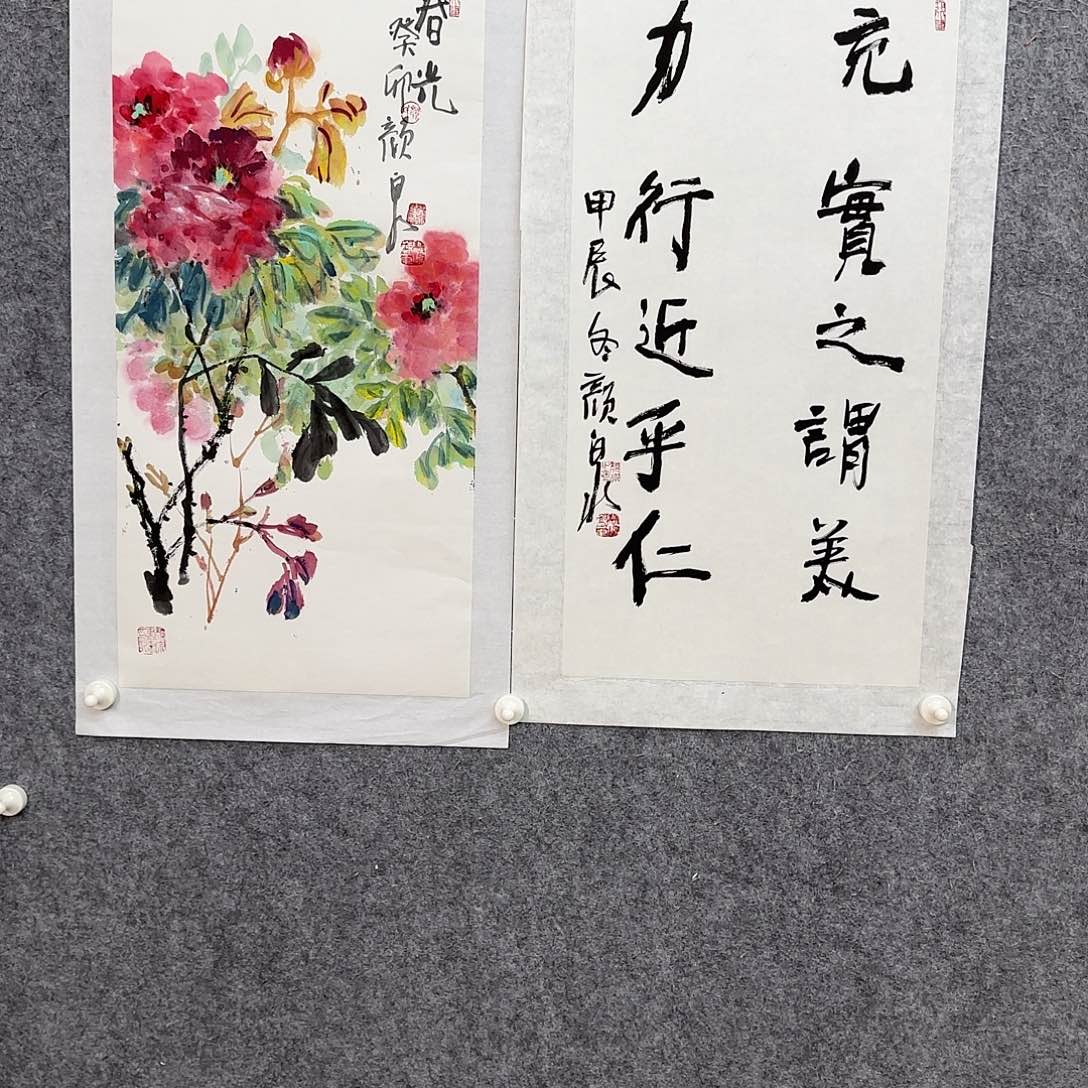 春光
癸卯顏泉
充實之謂美
力行近乎仁
甲辰冬顏泉